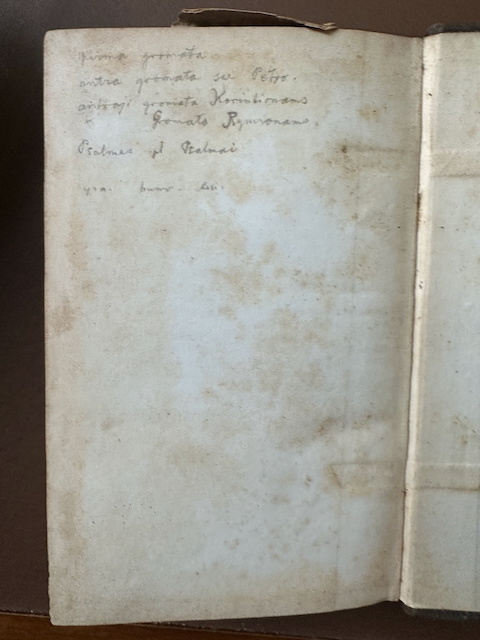 pirma gromata
antra gromata sw Petro.
antroji gromata Korintionams
Gromata Rymionams.
Psalmas pl Psalmai
yra. buvo.